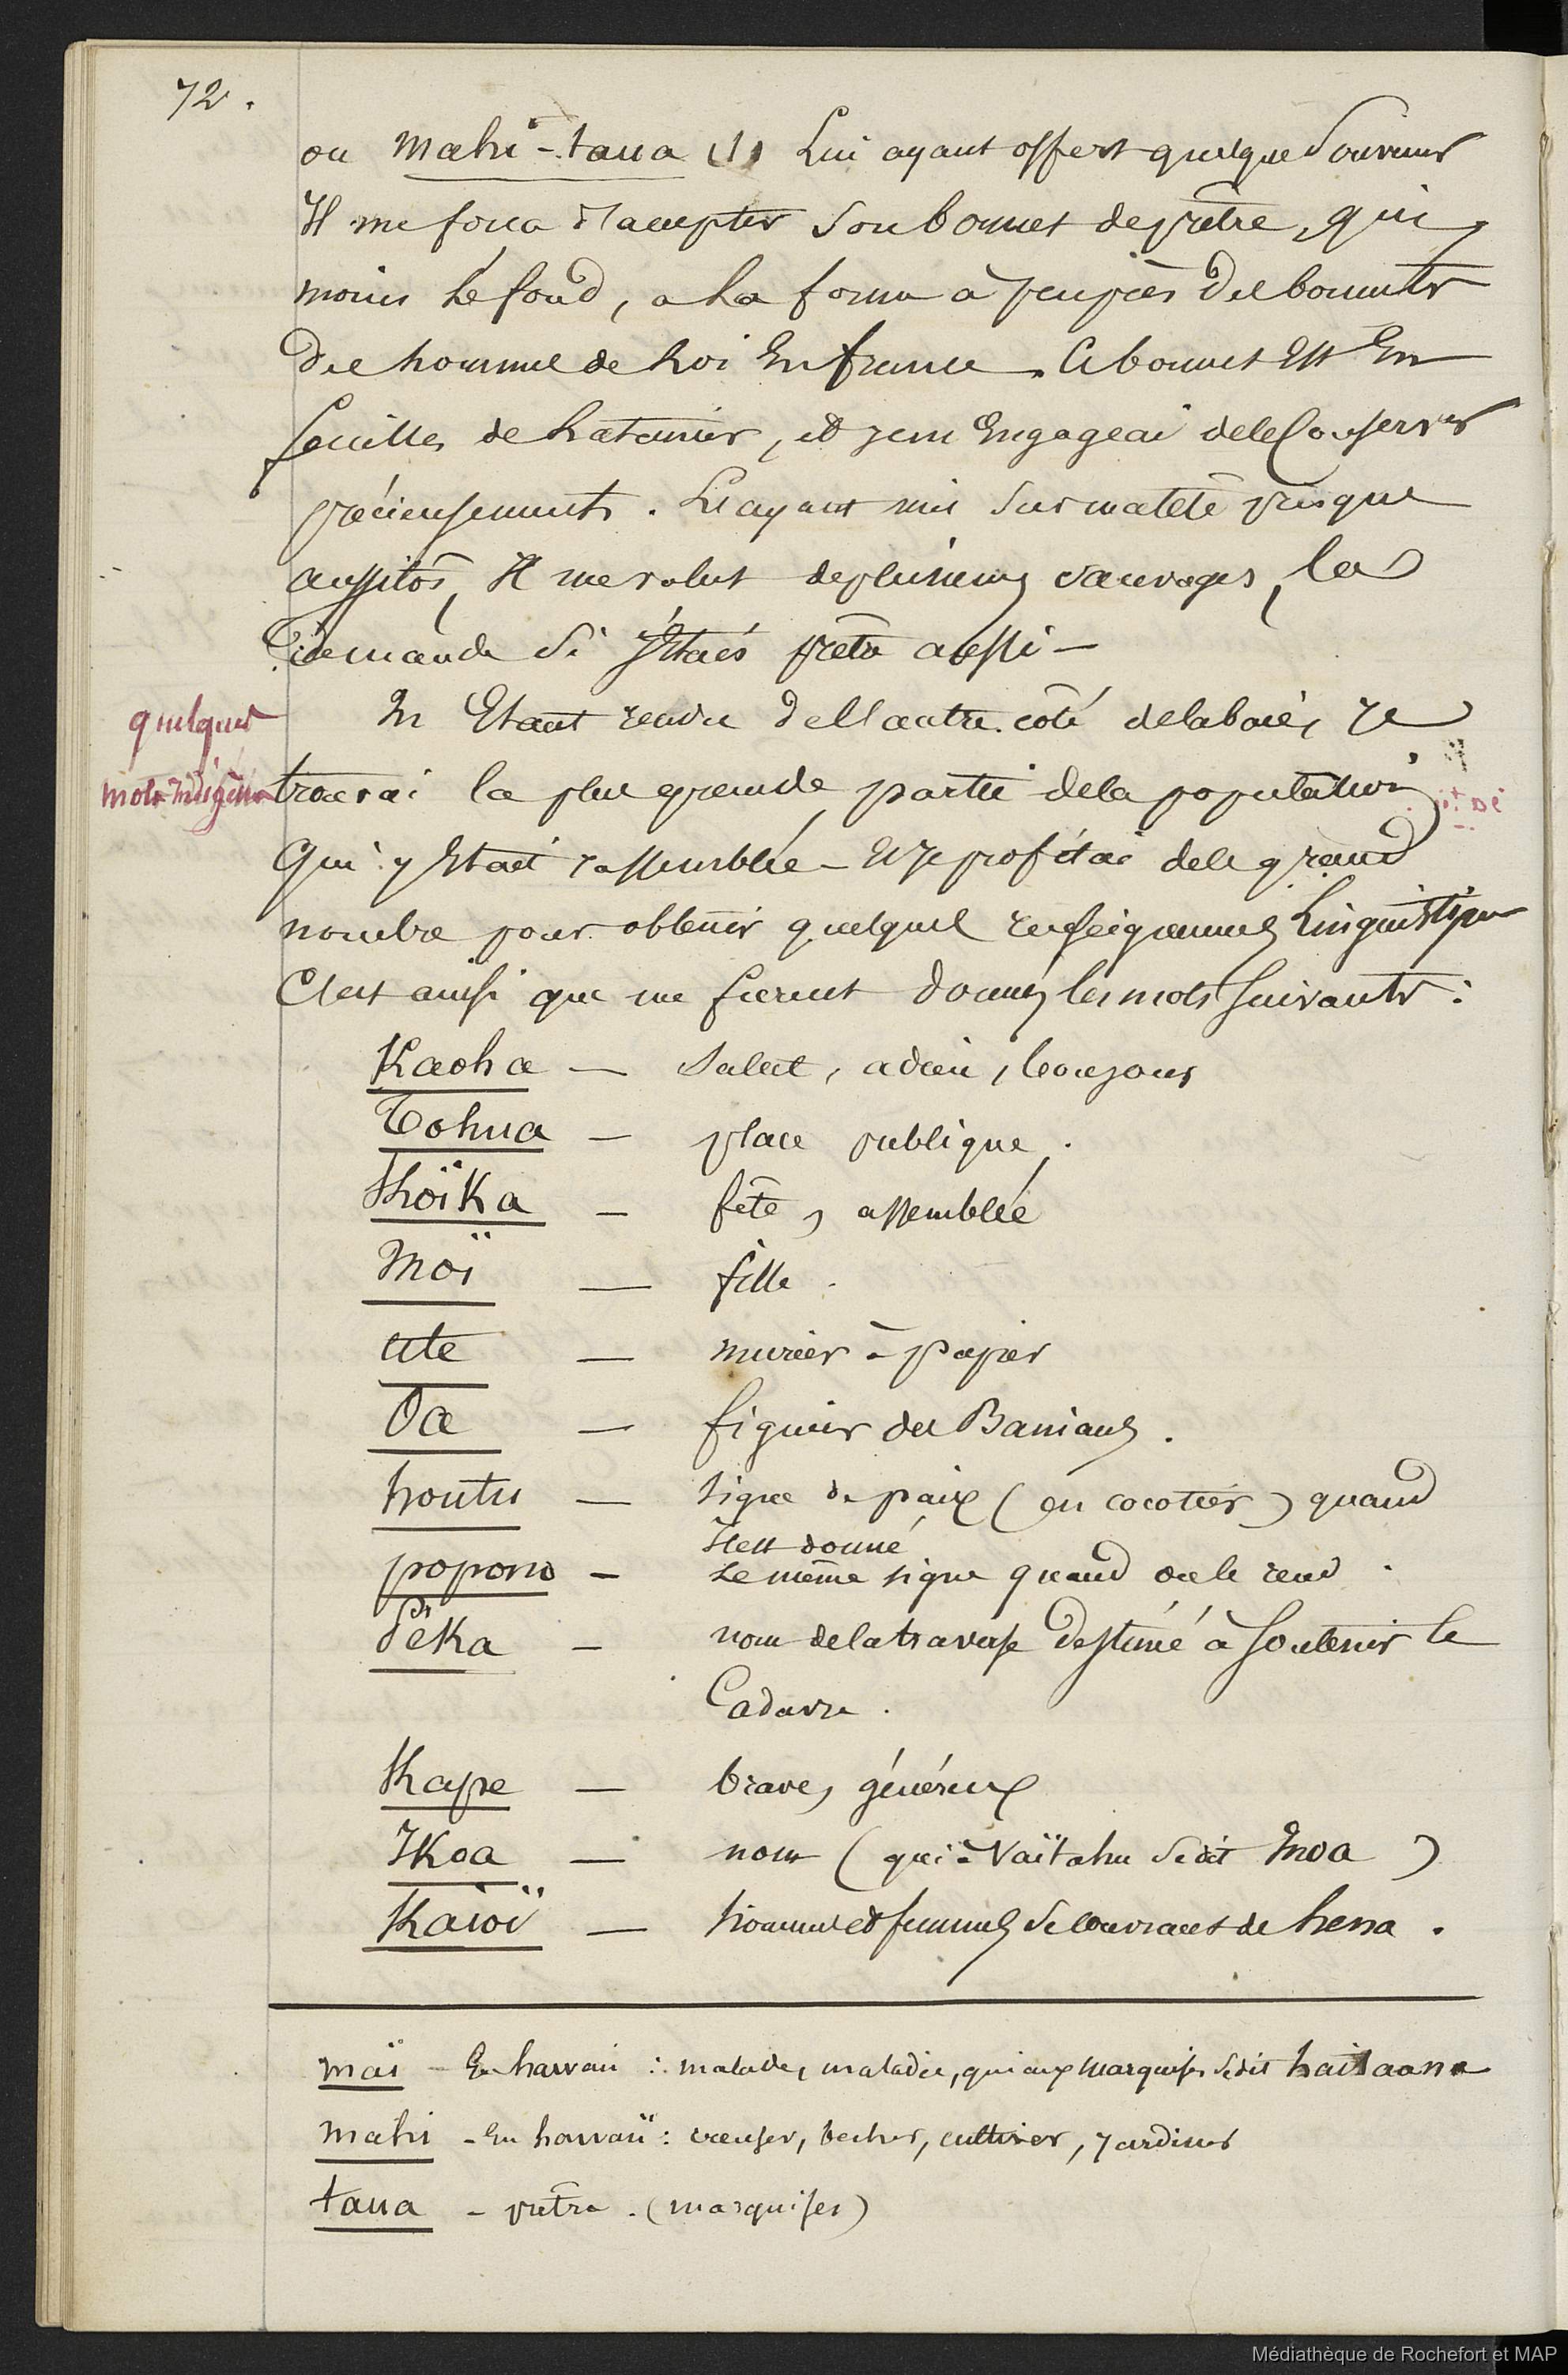 72.
ou Mahi-taua (1) Lui ayant offert quelque Souvenir
Il me força d'accepter Son bonnet de prêtre, qui,
moins le fond, a la forme à peu près des bonnets
des hommes de loi En france. Ce bonnet Est En
feuilles de latanier, et je m'Engageai de le Conserver
précieusement. L'ayant mis Sur ma tête presque
aussitôt, Il me valut de plusieurs sauvages, la
demande Si j'Etais prêtre aussi —
quelques
mots Indigènes
M'Etant rendu de l'autre côté de la baie, je
trouvai la plus grande partie de la population
qui y Etait rassemblée — Et je profitai de le grand
nombre pour obtenir quelques renseignements Linguistiques
C'est ainsi que me furent donnés les mots Suivants :
Kaoha — Salut, adieu, bonjour
Tohua — place publique.
Khoïka — fête, assemblée
Moï — fille.
ute — murier à papier
Oa — figuier des Banians.
houtu — signe de paix (en cocotier) quand
Il est donné
popono — Le même signe quand on le rend.
Pèka — nom de la traverse destiné à Soutenir le
Cadavre.
Khape — brave, généreux
Ikoa — nom (qui à Vaïtahu Se dit Inoa)
Kaïoï — hommes et femmes Se couvrant de hena.
maï — En hawaii : malade, maladie, qui aux Marquises Se dit haitaana
mahi — En hawaii : creuser, becher, cultiver, jardiner
taua — prêtre. (marquises)
Médiathèque de Rochefort et MAP